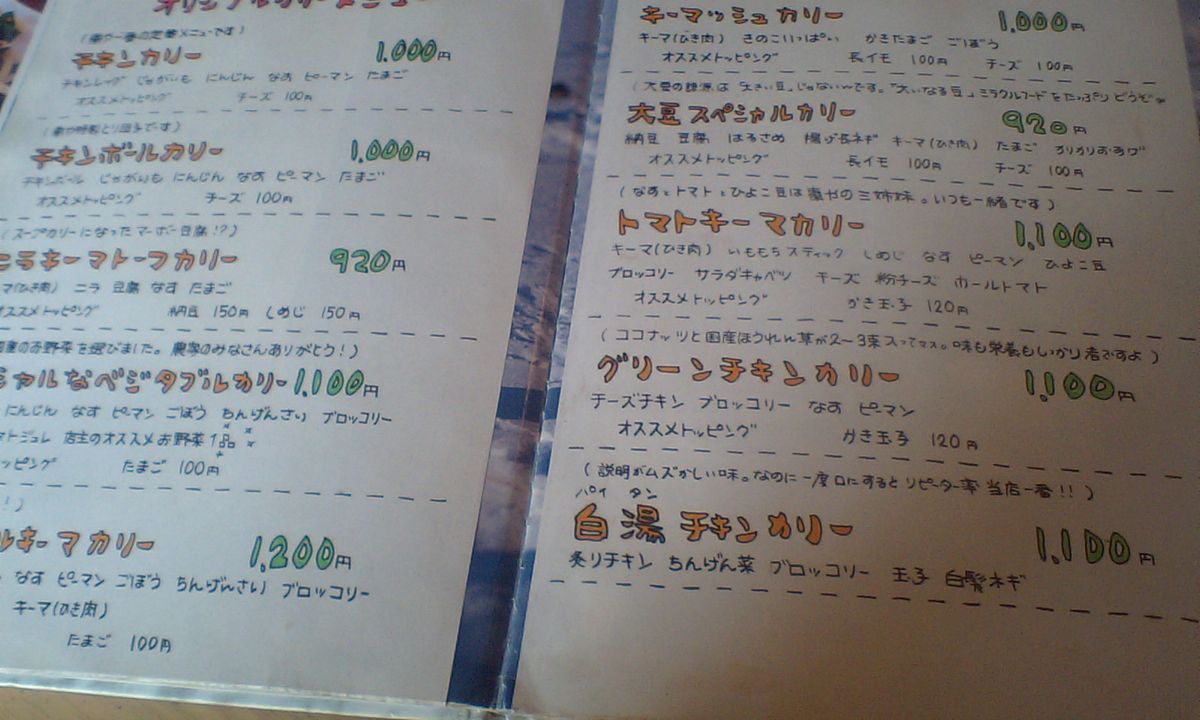 オリジナルカリーメニュー
チキンカリー 1.000円
チキンレッグ じゃがいも にんじん なす ピーマン たまご
オススメトッピング チーズ 100円
チキンボールカリー 1.000円
チキンボール じゃがいも にんじん なす ピーマン たまご
オススメトッピング チーズ 100円
(スープカリーになったマーボー豆腐!?)
ニラキーマトーフカリー 920円
マ(ひき肉) ニラ 豆腐 なす たまご
オススメトッピング 納豆 150円 しめじ 150円
産のお野菜を選びました。農家のみなさんありがとう!)
シャルなベジタブルカリー 1.100円
にんじん なす ピーマン ごぼう ちんげんさい ブロッコリー
マトジュレ 店主のオススメお野菜1品
ッピング たまご 100円
!)
ルキーマカリー 1.200円
なす ピーマン ごぼう ちんげんさい ブロッコリー
キーマ(ひき肉)
たまご 100円
キーマッシュカリー 1.000円
キーマ(ひき肉) きのこいっぱい かきたまご ごぼう
オススメトッピング 長イモ 100円 チーズ 100円
(大豆の語源は「大きい豆」じゃないんです。「大いなる豆」ミラクルフードをたっぷりどうぞ
大豆スペシャルカリー 920円
納豆 豆腐 はるさめ 揚げ長ネギ キーマ(ひき肉) たまご カリカリおあげ
オススメトッピング 長イモ 100円 チーズ 100円
(なすとトマトとひよこ豆は奥やの三姉妹。いつも一緒です)
トマトキーマカリー 1.100円
キーマ(ひき肉) いももちスティック しめじ なす ピーマン ひよこ豆
ブロッコリー サラダキャベツ チーズ 粉チーズ ホールトマト
オススメトッピング かき玉子 120円
(ココナッツと国産ほうれん草が2~3束入ってマス。味も栄養もしっかり者ですよ)
グリーンチキンカリー 1.100円
チーズチキン ブロッコリー なす ピーマン
オススメトッピング かき玉子 120円
(説明がムズかしい味。なのに一度口にするとリピーター率当店一番!!)
パイ タン
白湯チキンカリー 1.100円
炙りチキン ちんげん菜 ブロッコリー 玉子 白髪ネギ